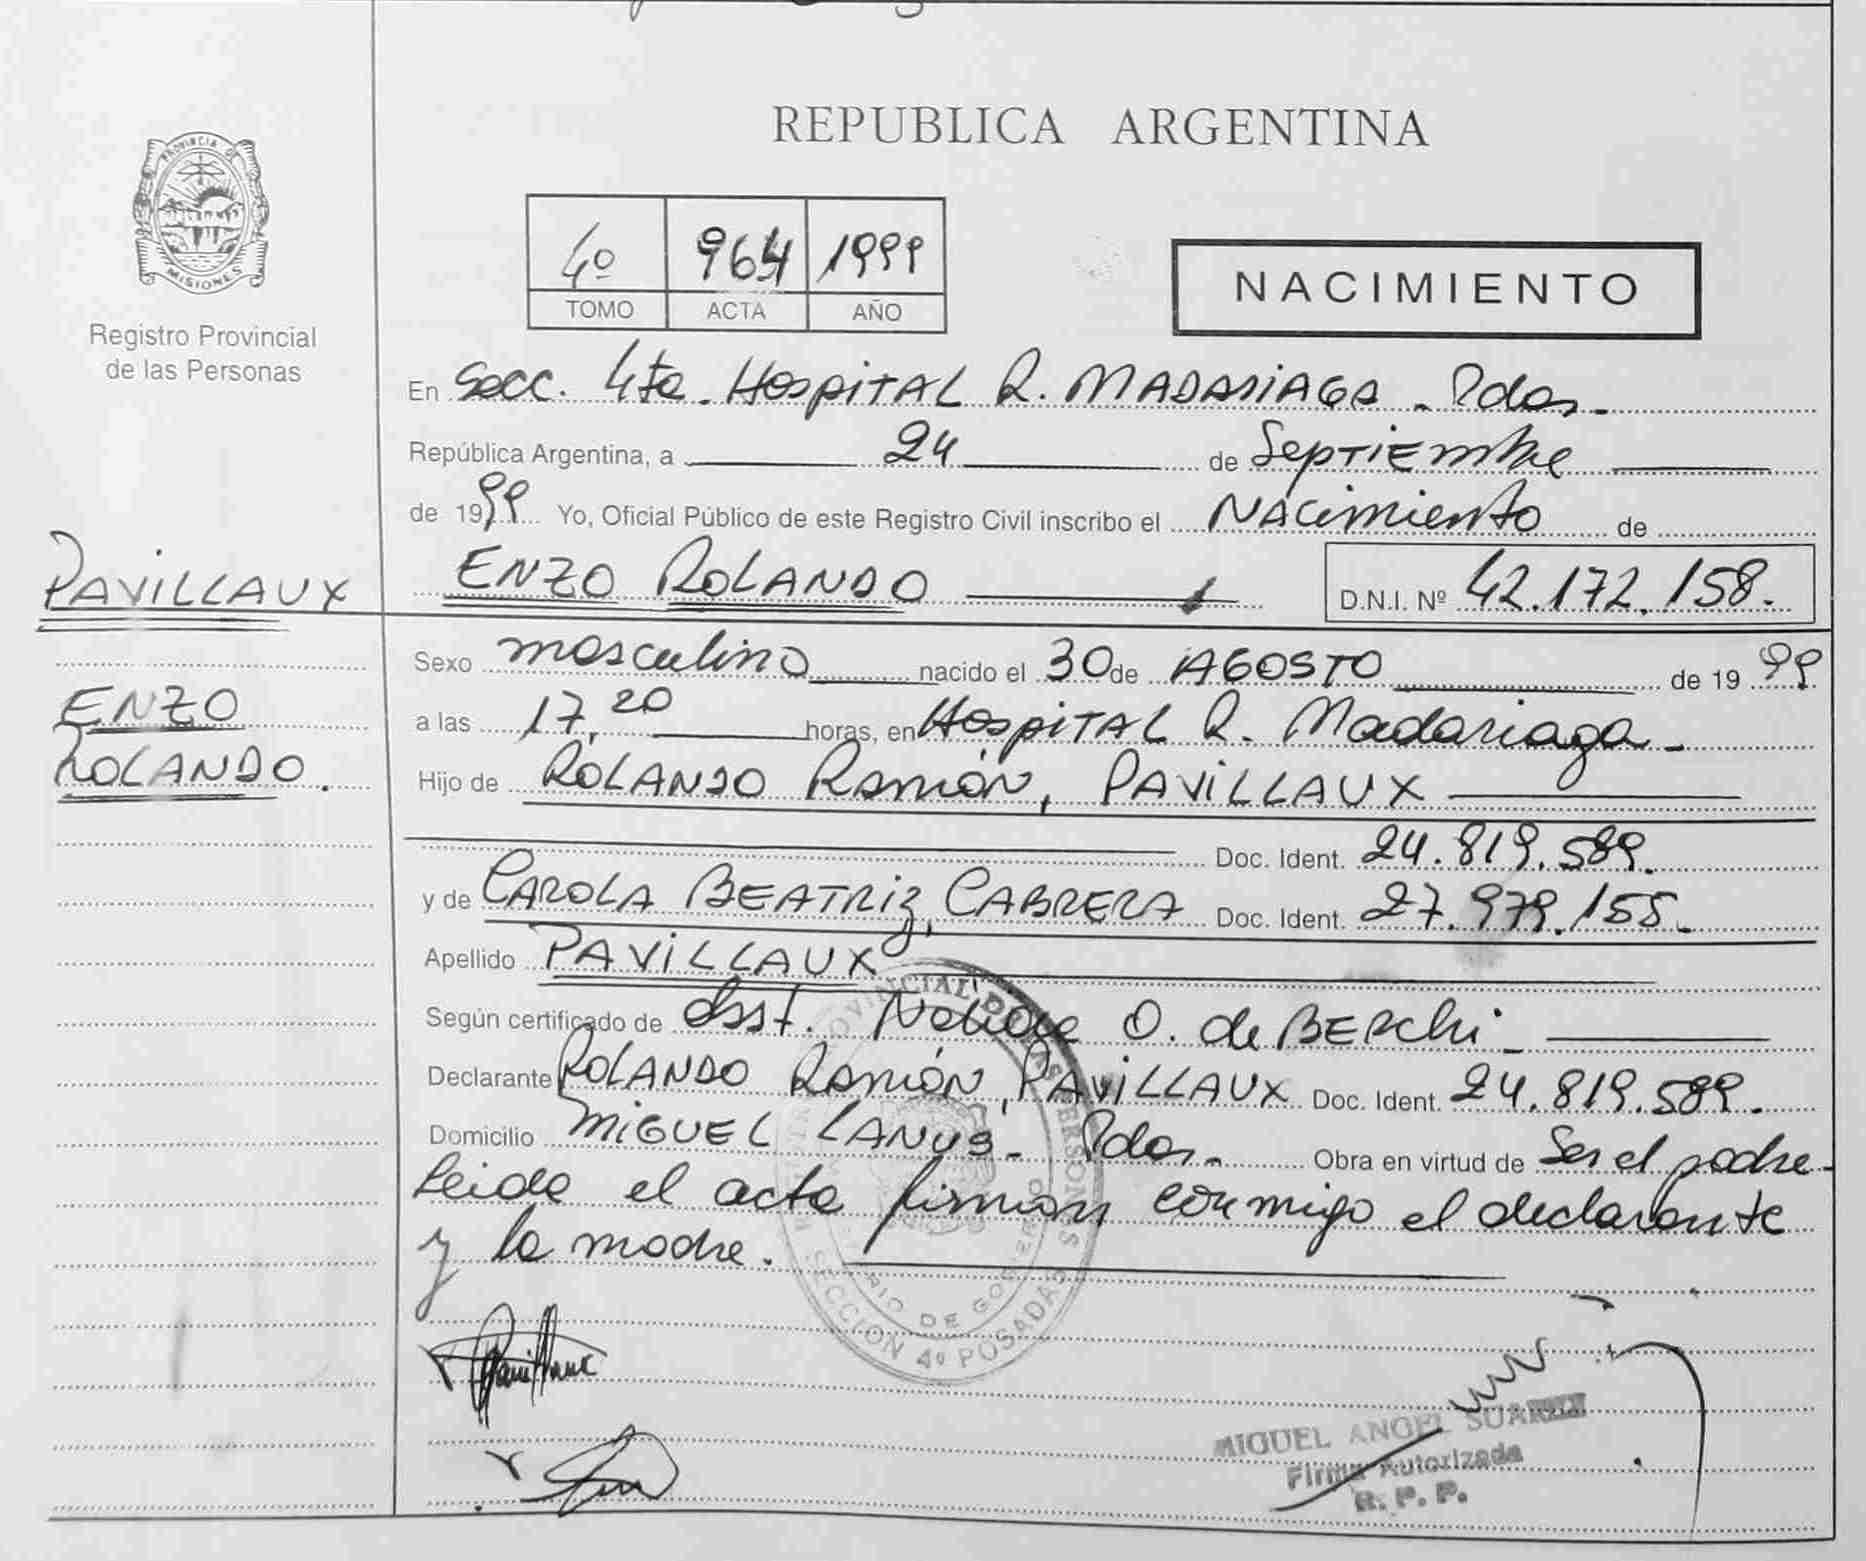 REPUBLICA ARGENTINA
PROVINCIA DE
MISIONES
Registro Provincial
de las Personas
4º 964 1999
TOMO ACTA AÑO
NACIMIENTO
En Secc. 4ta. HOSPITAL R. MADARIAGA - Pdas.
República Argentina, a 24 de Septiembre
de 1999 Yo, Oficial Público de este Registro Civil inscribo el Nacimiento de
PAVILLAUX
ENZO ROLANDO D.N.I. Nº 42.172.158.
ENZO
ROLANDO.
Sexo masculino nacido el 30 de AGOSTO de 1999
a las 17,20 horas, en HOSPITAL R. Madariaga -
Hijo de ROLANDO Ramón, PAVILLAUX
Doc. Ident. 24.819.589.
y de CAROLA BEATRIZ, CABRERA Doc. Ident. 27.979.155.
Apellido PAVILLAUX
Según certificado de Obst. O. de BERChi -
Declarante ROLANDO Ramón, PAVILLAUX Doc. Ident. 24.819.589.
Domicilio MIGUEL LANUS - Pdas. Obra en virtud de Ser el padre -
Leida el acta firman conmigo el declarante
y la madre.
PROVINCIAL DE LAS PERSONAS
SECCION 4º POSADAS
DE GOBIERNO
MIGUEL ANGEL SUAREZ
Firma Autorizada
R. P. P.